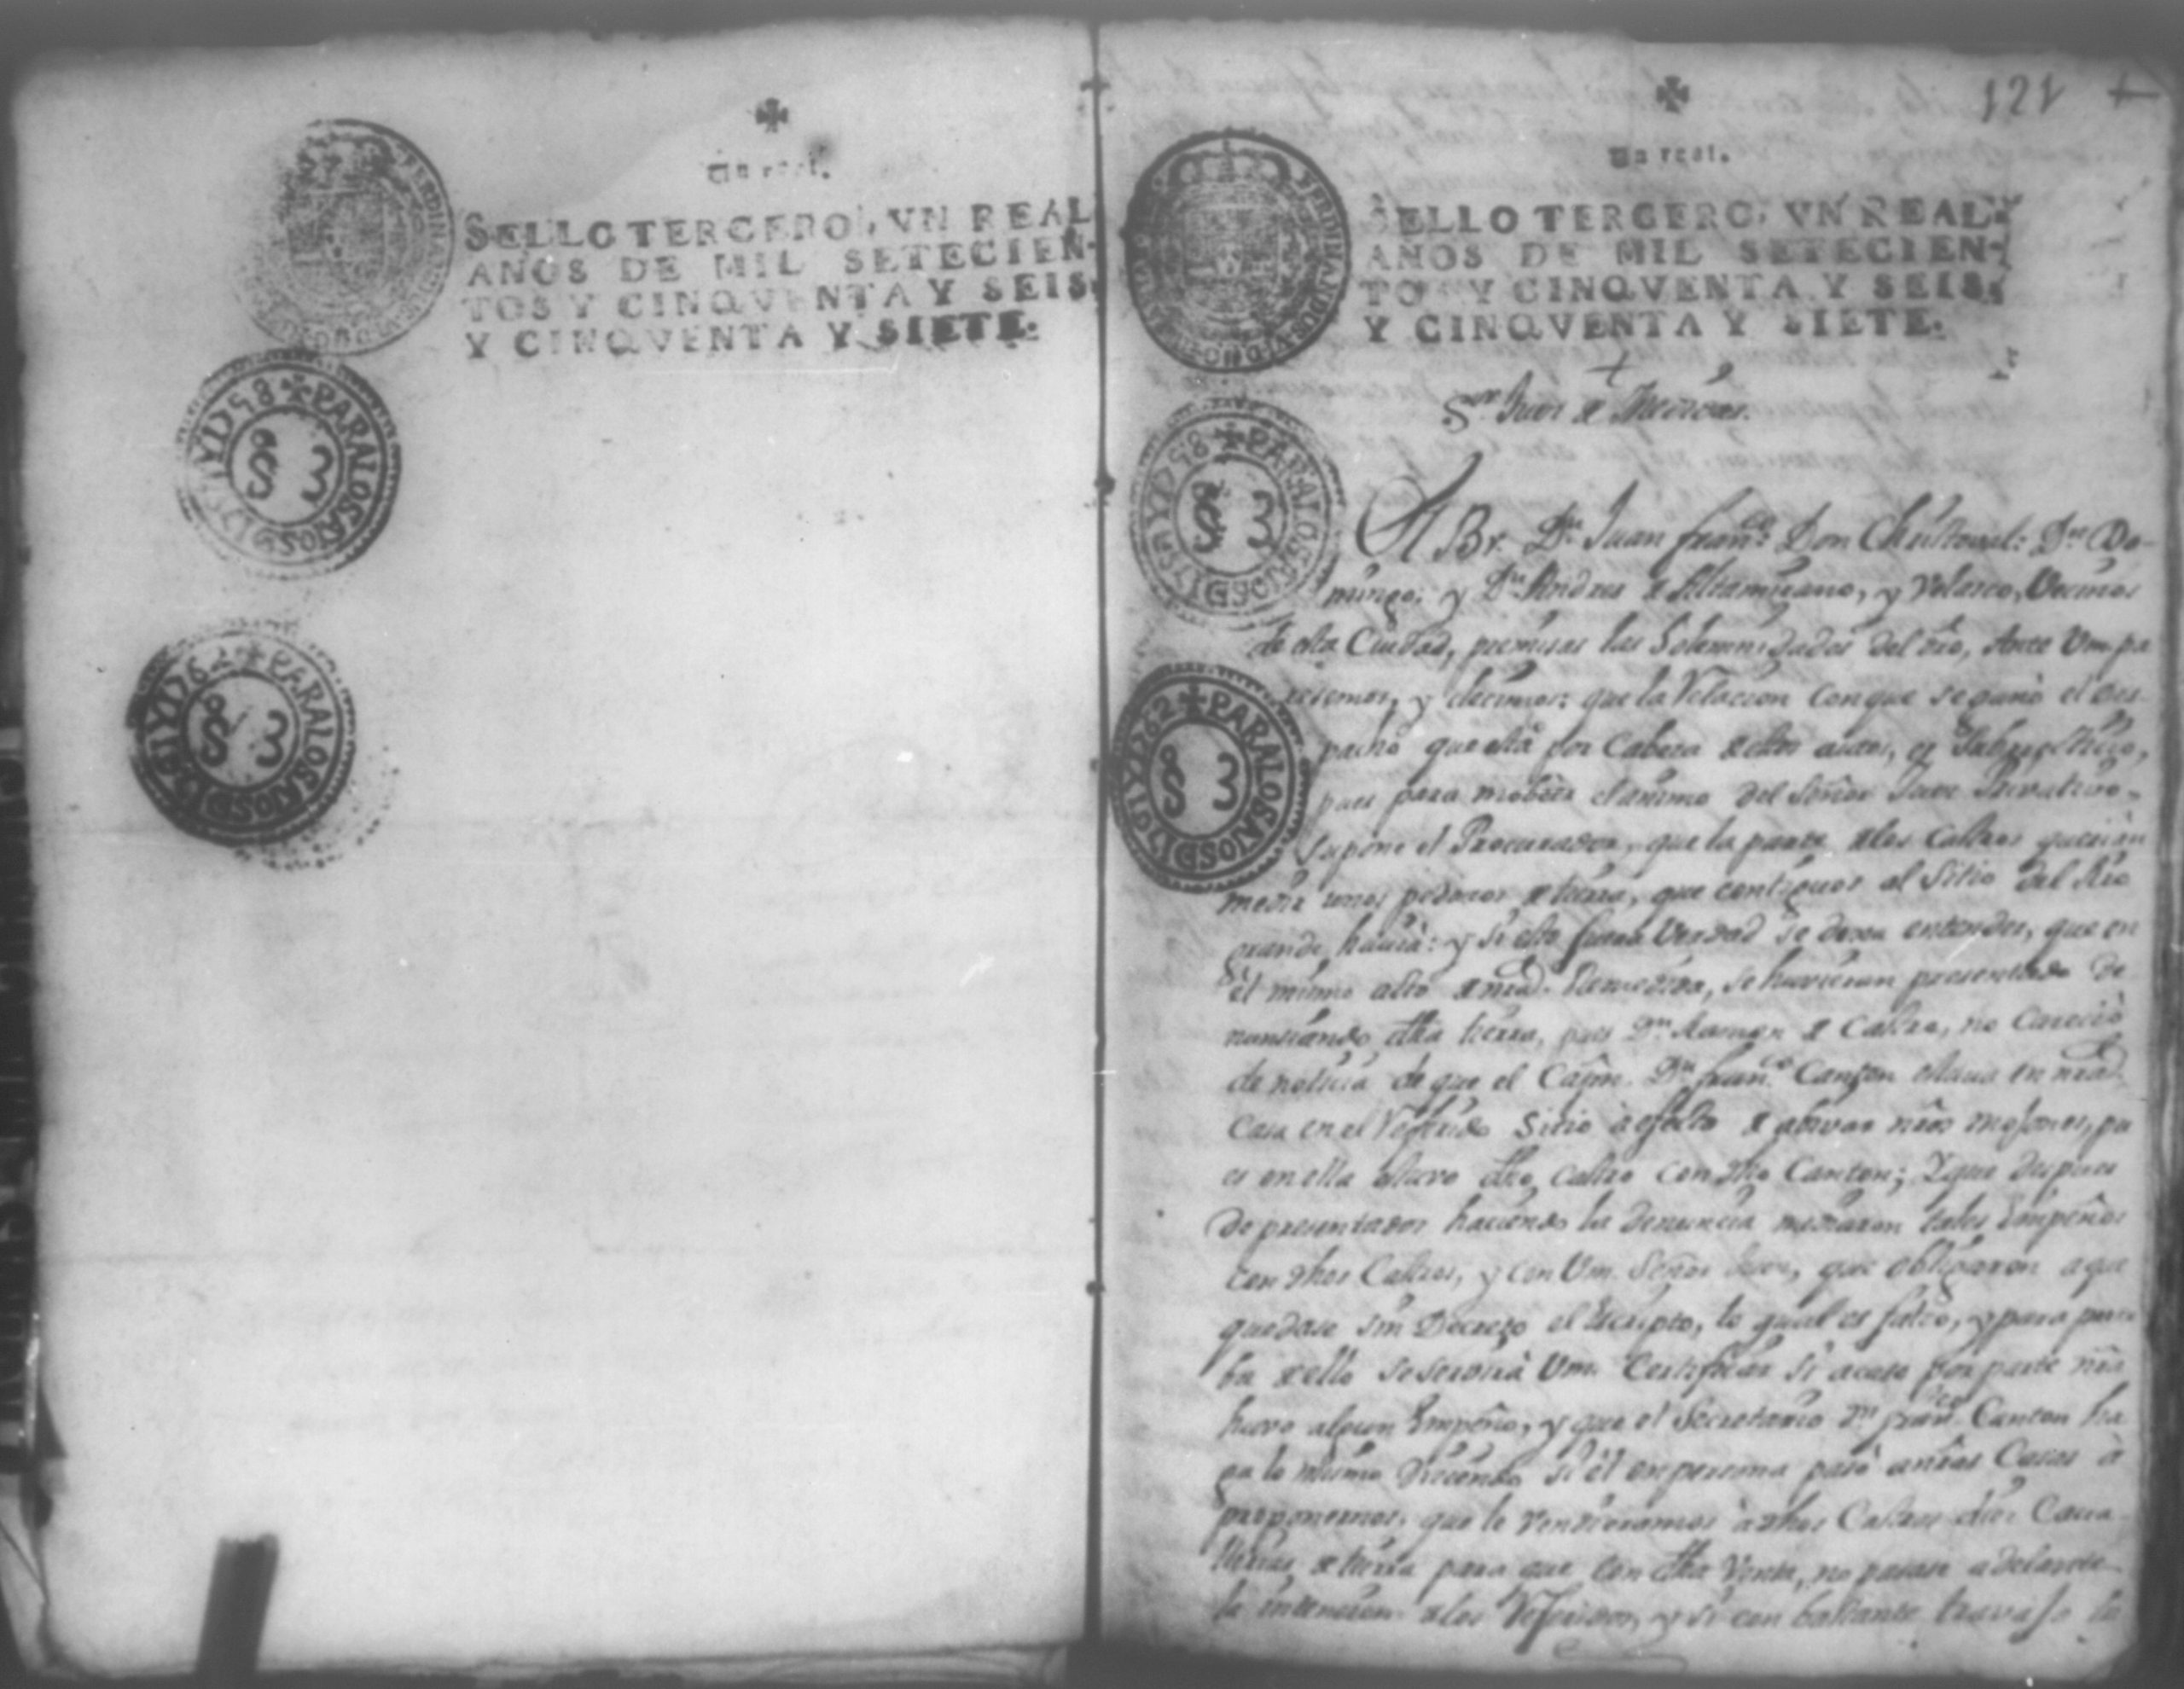 Un real.
SELLO TERCERO, VN REAL
AÑOS DE MIL SETECIEN-
TOS Y CINQVENTA Y SEIS,
Y CINQVENTA Y SIETE.
PARA LOS AÑOS D 1757 Y 1758
S 3
PARA LOS AÑOS D 1761 Y 1762
S 3
121
Un real.
SELLO TERCERO, VN REAL
AÑOS DE MIL SETECIEN-
TOS Y CINQVENTA Y SEIS,
Y CINQVENTA Y SIETE.
PARA LOS AÑOS D 1757 Y 1758
S 3
PARA LOS AÑOS D 1761 Y 1762
S 3
Sor Juez
El Br. Dn Juan franco Don Christoval: Dn Do-
mingo: y Dn Andres de Altamirano, y Velasco, Vecinos
de esta Ciudad, premisas las Solemnidades del dro, Ante Vm pa
resemos, y decimos: que la Relacion con que se ganó el Des-
pacho que está por Cabeza destos autos, es
pues para mober el animo del Señor Juez Privativo
supone el Procurador, que la parte de los Castros querian
medir unos pedasos de tierra, que contiguos al Sitio del Rio
grande havia: y si esto fuera Verdad se dexa entender, que en
el mismo año de se huvieran presentado de
nunciando dha tierra, pues Dn de Castro, no Careció
de noticia de que el Capn. Dn franco Canton estava en nra
Casa en el Referido Sitio a efecto de abivar nros mojones, pu
es en ella estuvo dho Castro con dho Canton; Y que despues
de presentados haciendo la denuncia mediaron tales Empeños
con dhos Castros, y con Vm. Señor Juez, que obligaron a que
quedase sin Decreto el Escripto, lo qual es falso, y para prue
ba de ello se servirá Vm. Certificar si acaso por parte nra
huvo algun Empeño, y que el Secretario Dn franco Canton ha
ga lo mismo diciendo si él en persona pasó a nras Casas à
proponernos, que le vendieramos à dhos Castros dies Cava-
llerias de tierra para que con dha Venta, no pasase adelante
la intencion de los Referidos, y si con bastante travajo la